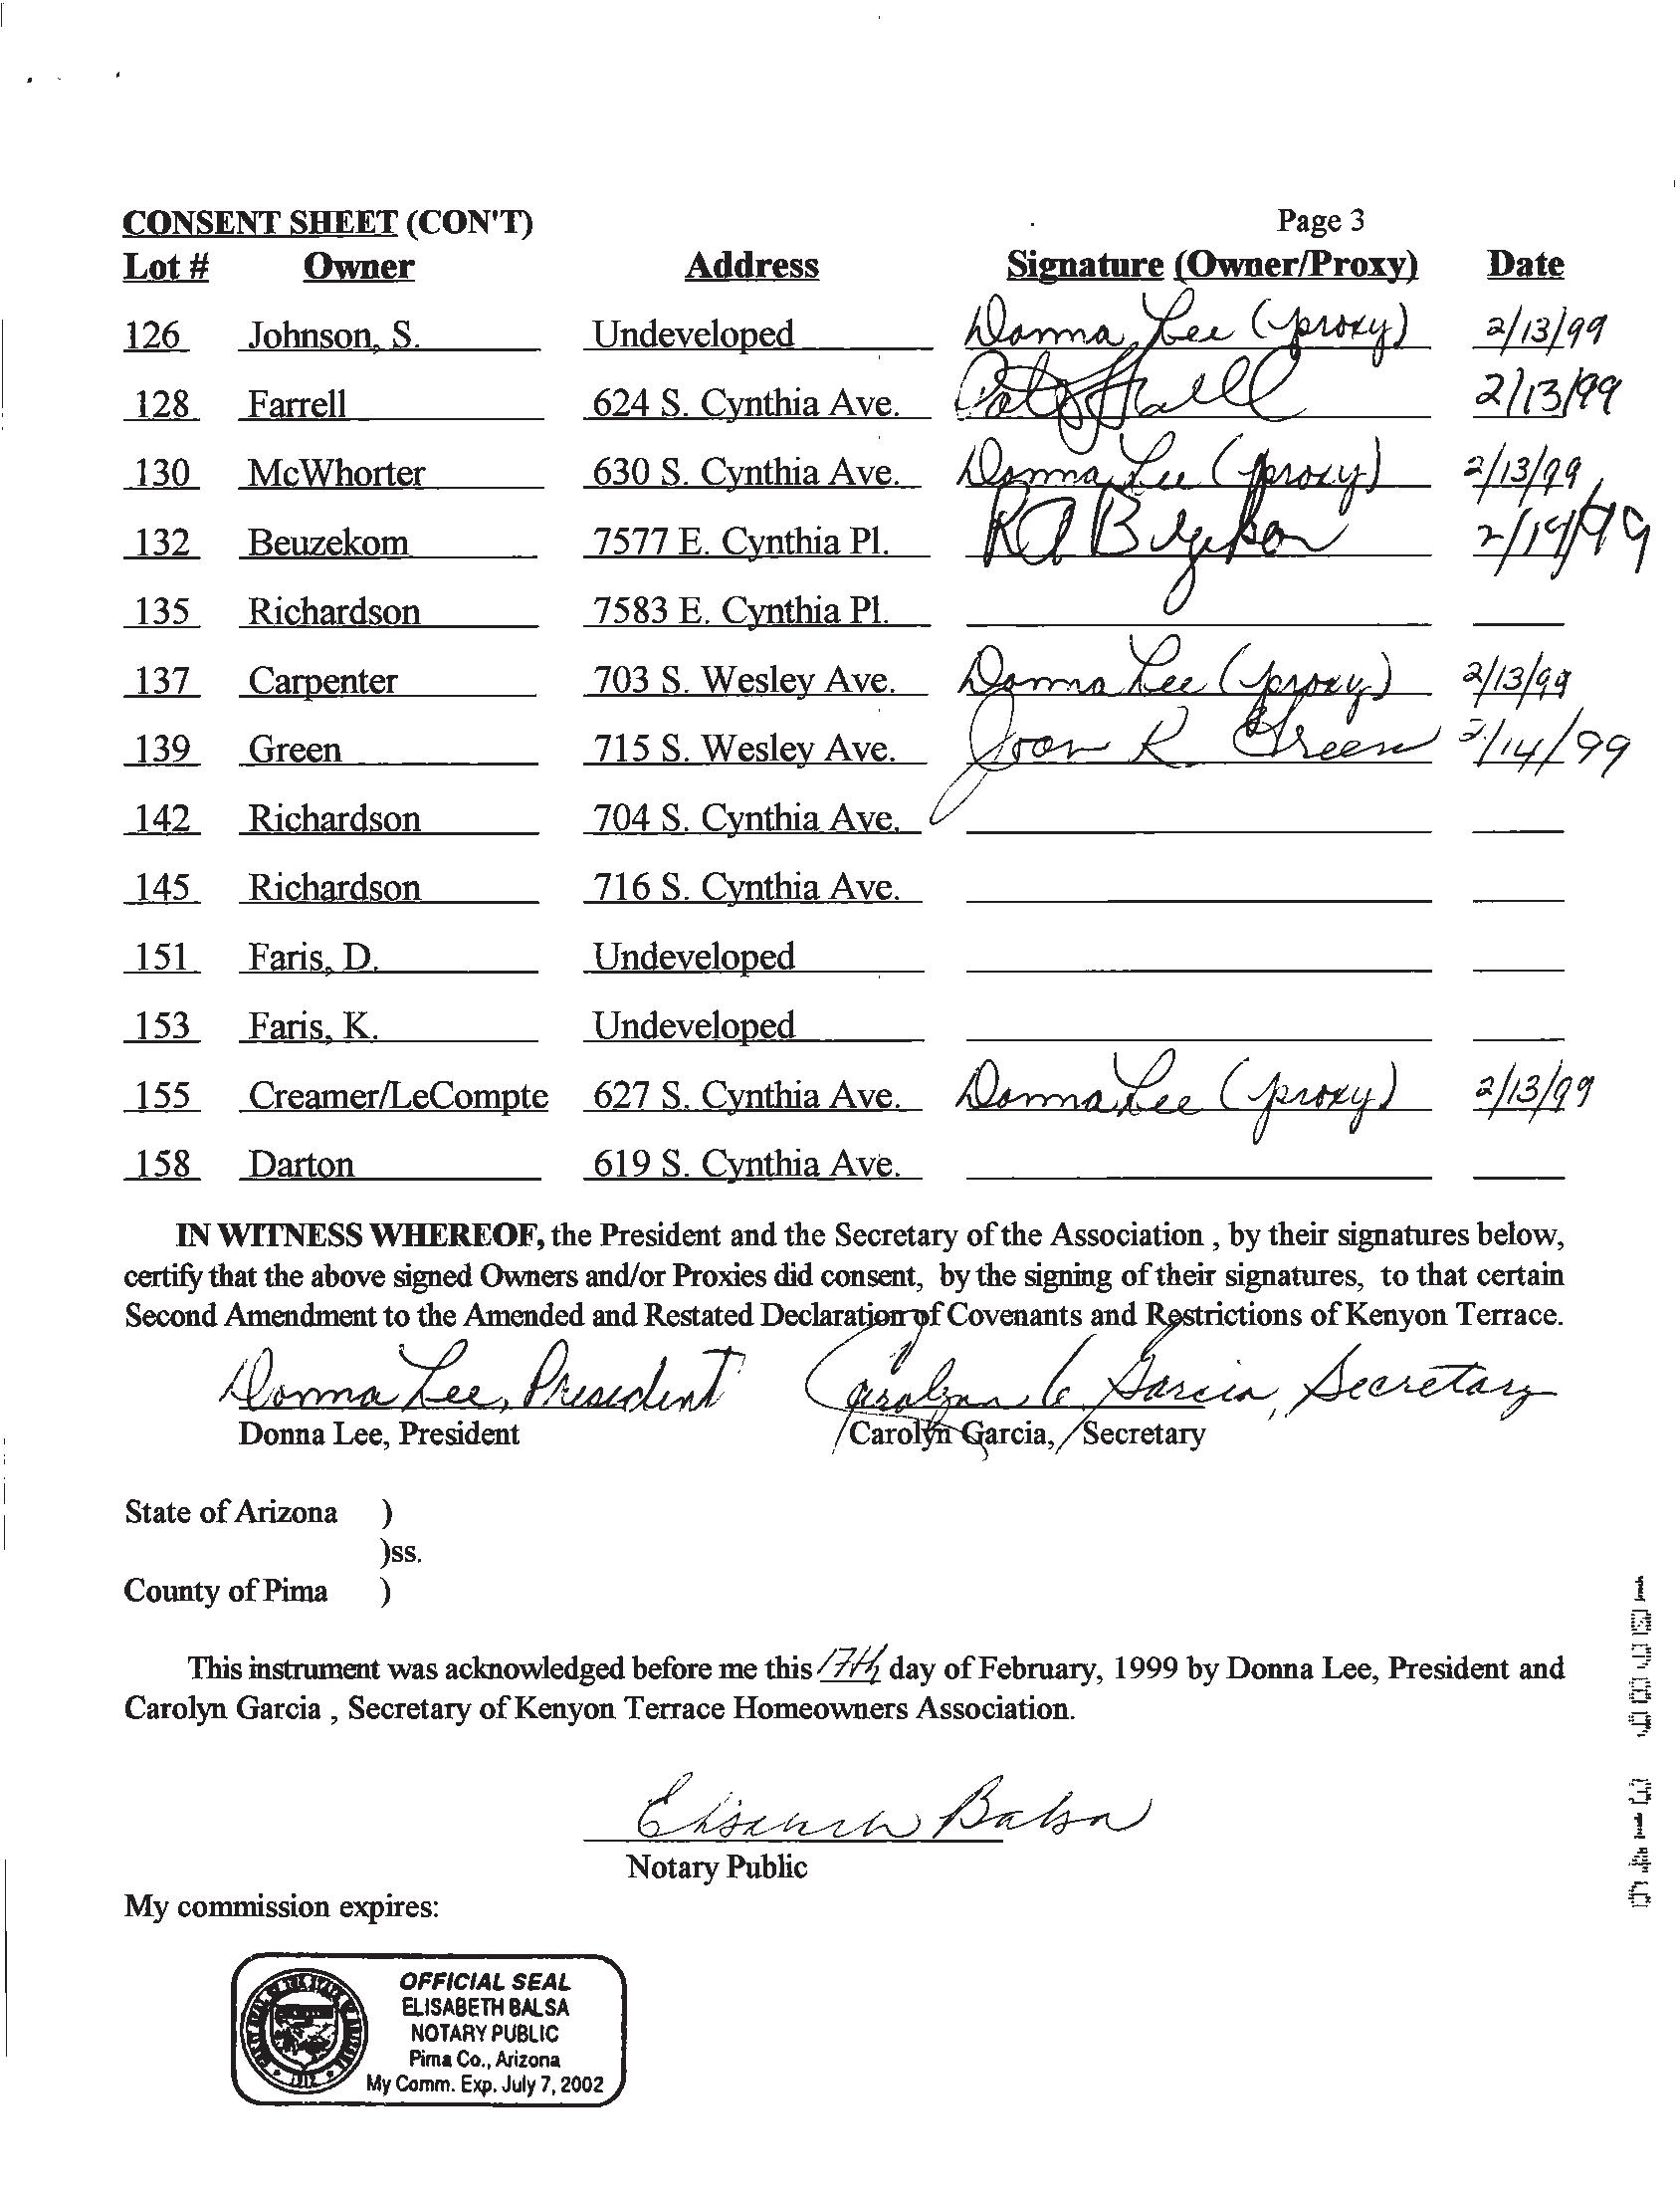 CONSENT SHEET (CON'T) Page 3
Lot # Owner Address Signature (Owner/Proxy) Date
126 Johnson, S. Undeveloped Donna Lee (proxy) 2/13/99
128 Farrell 624 S. Cynthia Ave. 2/13/99
130 McWhorter 630 S. Cynthia Ave. Donna Lee (proxy) 2/13/99
132 Beuzekom 7577 E. Cynthia Pl. 2/14/99
135 Richardson 7583 E. Cynthia Pl.
137 Carpenter 703 S. Wesley Ave. Donna Lee (proxy) 2/13/99
139 Green 715 S. Wesley Ave. Joan R. Green 2/14/99
142 Richardson 704 S. Cynthia Ave.
145 Richardson 716 S. Cynthia Ave.
151 Faris, D. Undeveloped
153 Faris, K. Undeveloped
155 Creamer/LeCompte 627 S. Cynthia Ave. Donna Lee (proxy) 2/13/99
158 Darton 619 S. Cynthia Ave.
IN WITNESS WHEREOF, the President and the Secretary of the Association , by their signatures below,
certify that the above signed Owners and/or Proxies did consent, by the signing of their signatures, to that certain
Second Amendment to the Amended and Restated Declaration of Covenants and Restrictions of Kenyon Terrace.
Donna Lee, President Carolyn G. Garcia, Secretary
Donna Lee, President Carolyn Garcia, Secretary
State of Arizona )
)ss.
County of Pima )
This instrument was acknowledged before me this 17th day of February, 1999 by Donna Lee, President and
Carolyn Garcia , Secretary of Kenyon Terrace Homeowners Association.
Elisabeth Balsa
Notary Public
My commission expires:
OFFICIAL SEAL
ELISABETH BALSA
NOTARY PUBLIC
Pima Co., Arizona
My Comm. Exp. July 7, 2002
1912